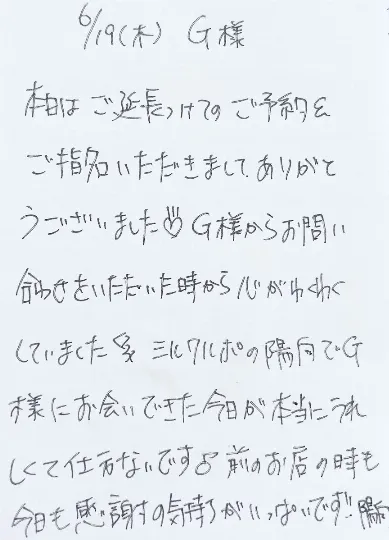 6/19(木) G様
本日は ご延長つけての ご予約&
ご指名いただきまして、ありがと
うございました♡ G様からお問い
合わせをいただいた時から 心がわくわく
していました ミルクルポの陽向でG
様にお会いできた今日が本当にうれ
しくて仕方ないです 前のお店の時も
今日も感謝の気持ちがいっぱいです!! 陽向